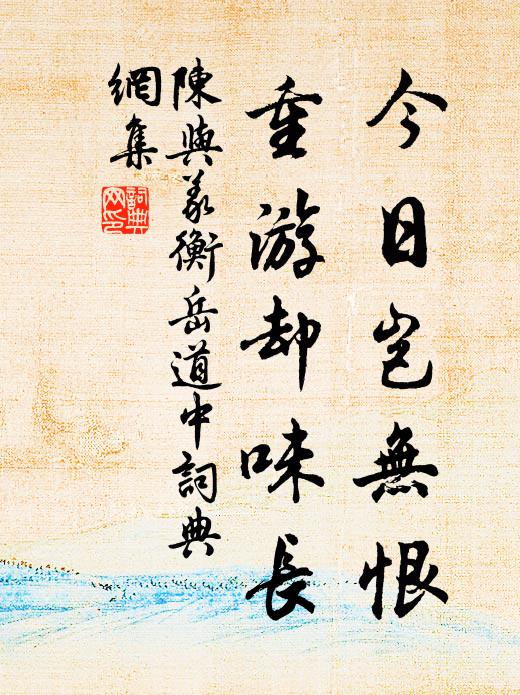 今日岂無恨
重游却味長
陳與義衡岳道中詞典
網集
詞典
网印